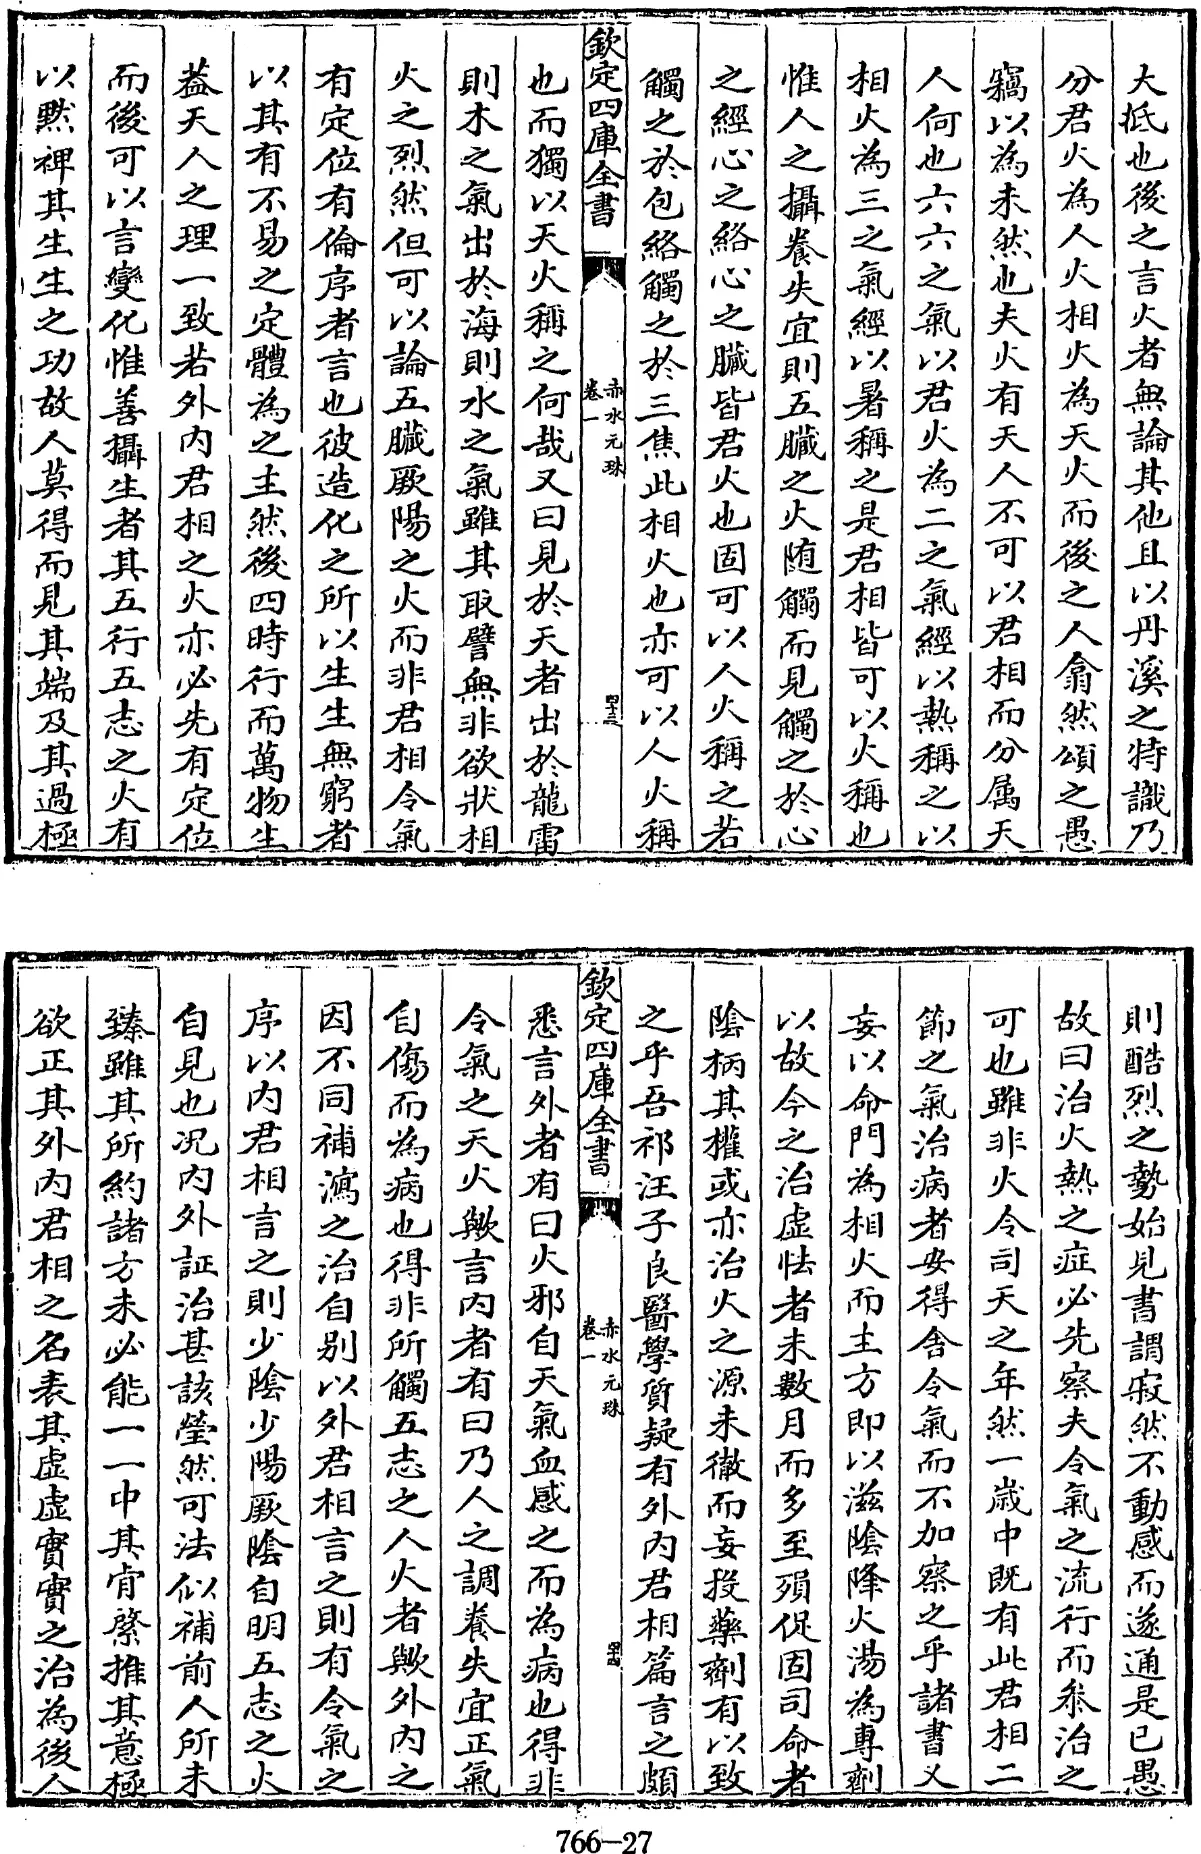 大抵也後之言火者無論其他且以丹溪之特識乃
分君火為人火相火為天火而後之人翕然頌之愚
竊以為未然也夫火有天人不可以君相而分属天
人何也六六之氣以君火為二之氣經以熱稱之以
相火為三之氣經以暑稱之是君相皆可以火稱也
惟人之攝養失宜則五臟之火随觸而見觸之於心
之經心之絡心之臟皆君火也固可以人火稱之若
觸之於包絡觸之於三焦此相火也亦可以人火稱
欽定四庫全書
赤水元珠
卷一
四十三
也而獨以天火稱之何哉又曰見於天者出於龍雷
則木之氣出於海則水之氣雖其取譬無非欲狀相
火之烈然但可以論五臟厥陽之火而非君相令氣
有定位有倫序者言也彼造化之所以生生無窮者
以其有不易之定體為之主然後四時行而萬物生
葢天人之理一致若外内君相之火亦必先有定位
而後可以言變化惟善攝生者其五行五志之火有
以黙裨其生生之功故人莫得而見其端及其過極
則酷烈之勢始見書謂寂然不動感而遂通是已愚
故曰治火熱之症必先察夫令氣之流行而叅治之
可也雖非火令司天之年然一歲中既有此君相二
節之氣治病者安得舍令氣而不加察之乎諸書又
妄以命門為相火而主方即以滋陰降火湯為專劑
以故今之治虛怯者未數月而多至殞促固司命者
陰柄其權或亦治火之源未徹而妄投藥劑有以致
之乎吾祁汪子良醫學質疑有外内君相篇言之頗
欽定四庫全書
赤水元珠
卷一
四十四
悉言外者有曰火邪自天氣血感之而為病也得非
令氣之天火歟言内者有曰乃人之調養失宜正氣
自傷而為病也得非所觸五志之人火者歟外内之
因不同補瀉之治自别以外君相言之則有令氣之
序以内君相言之則少陰少陽厥陰自明五志之火
自見也况内外証治甚該瑩然可法似補前人所未
臻雖其所約諸方未必能一一中其肯綮推其意極
欲正其外内君相之名表其虛虛實實之治為後人
766-27